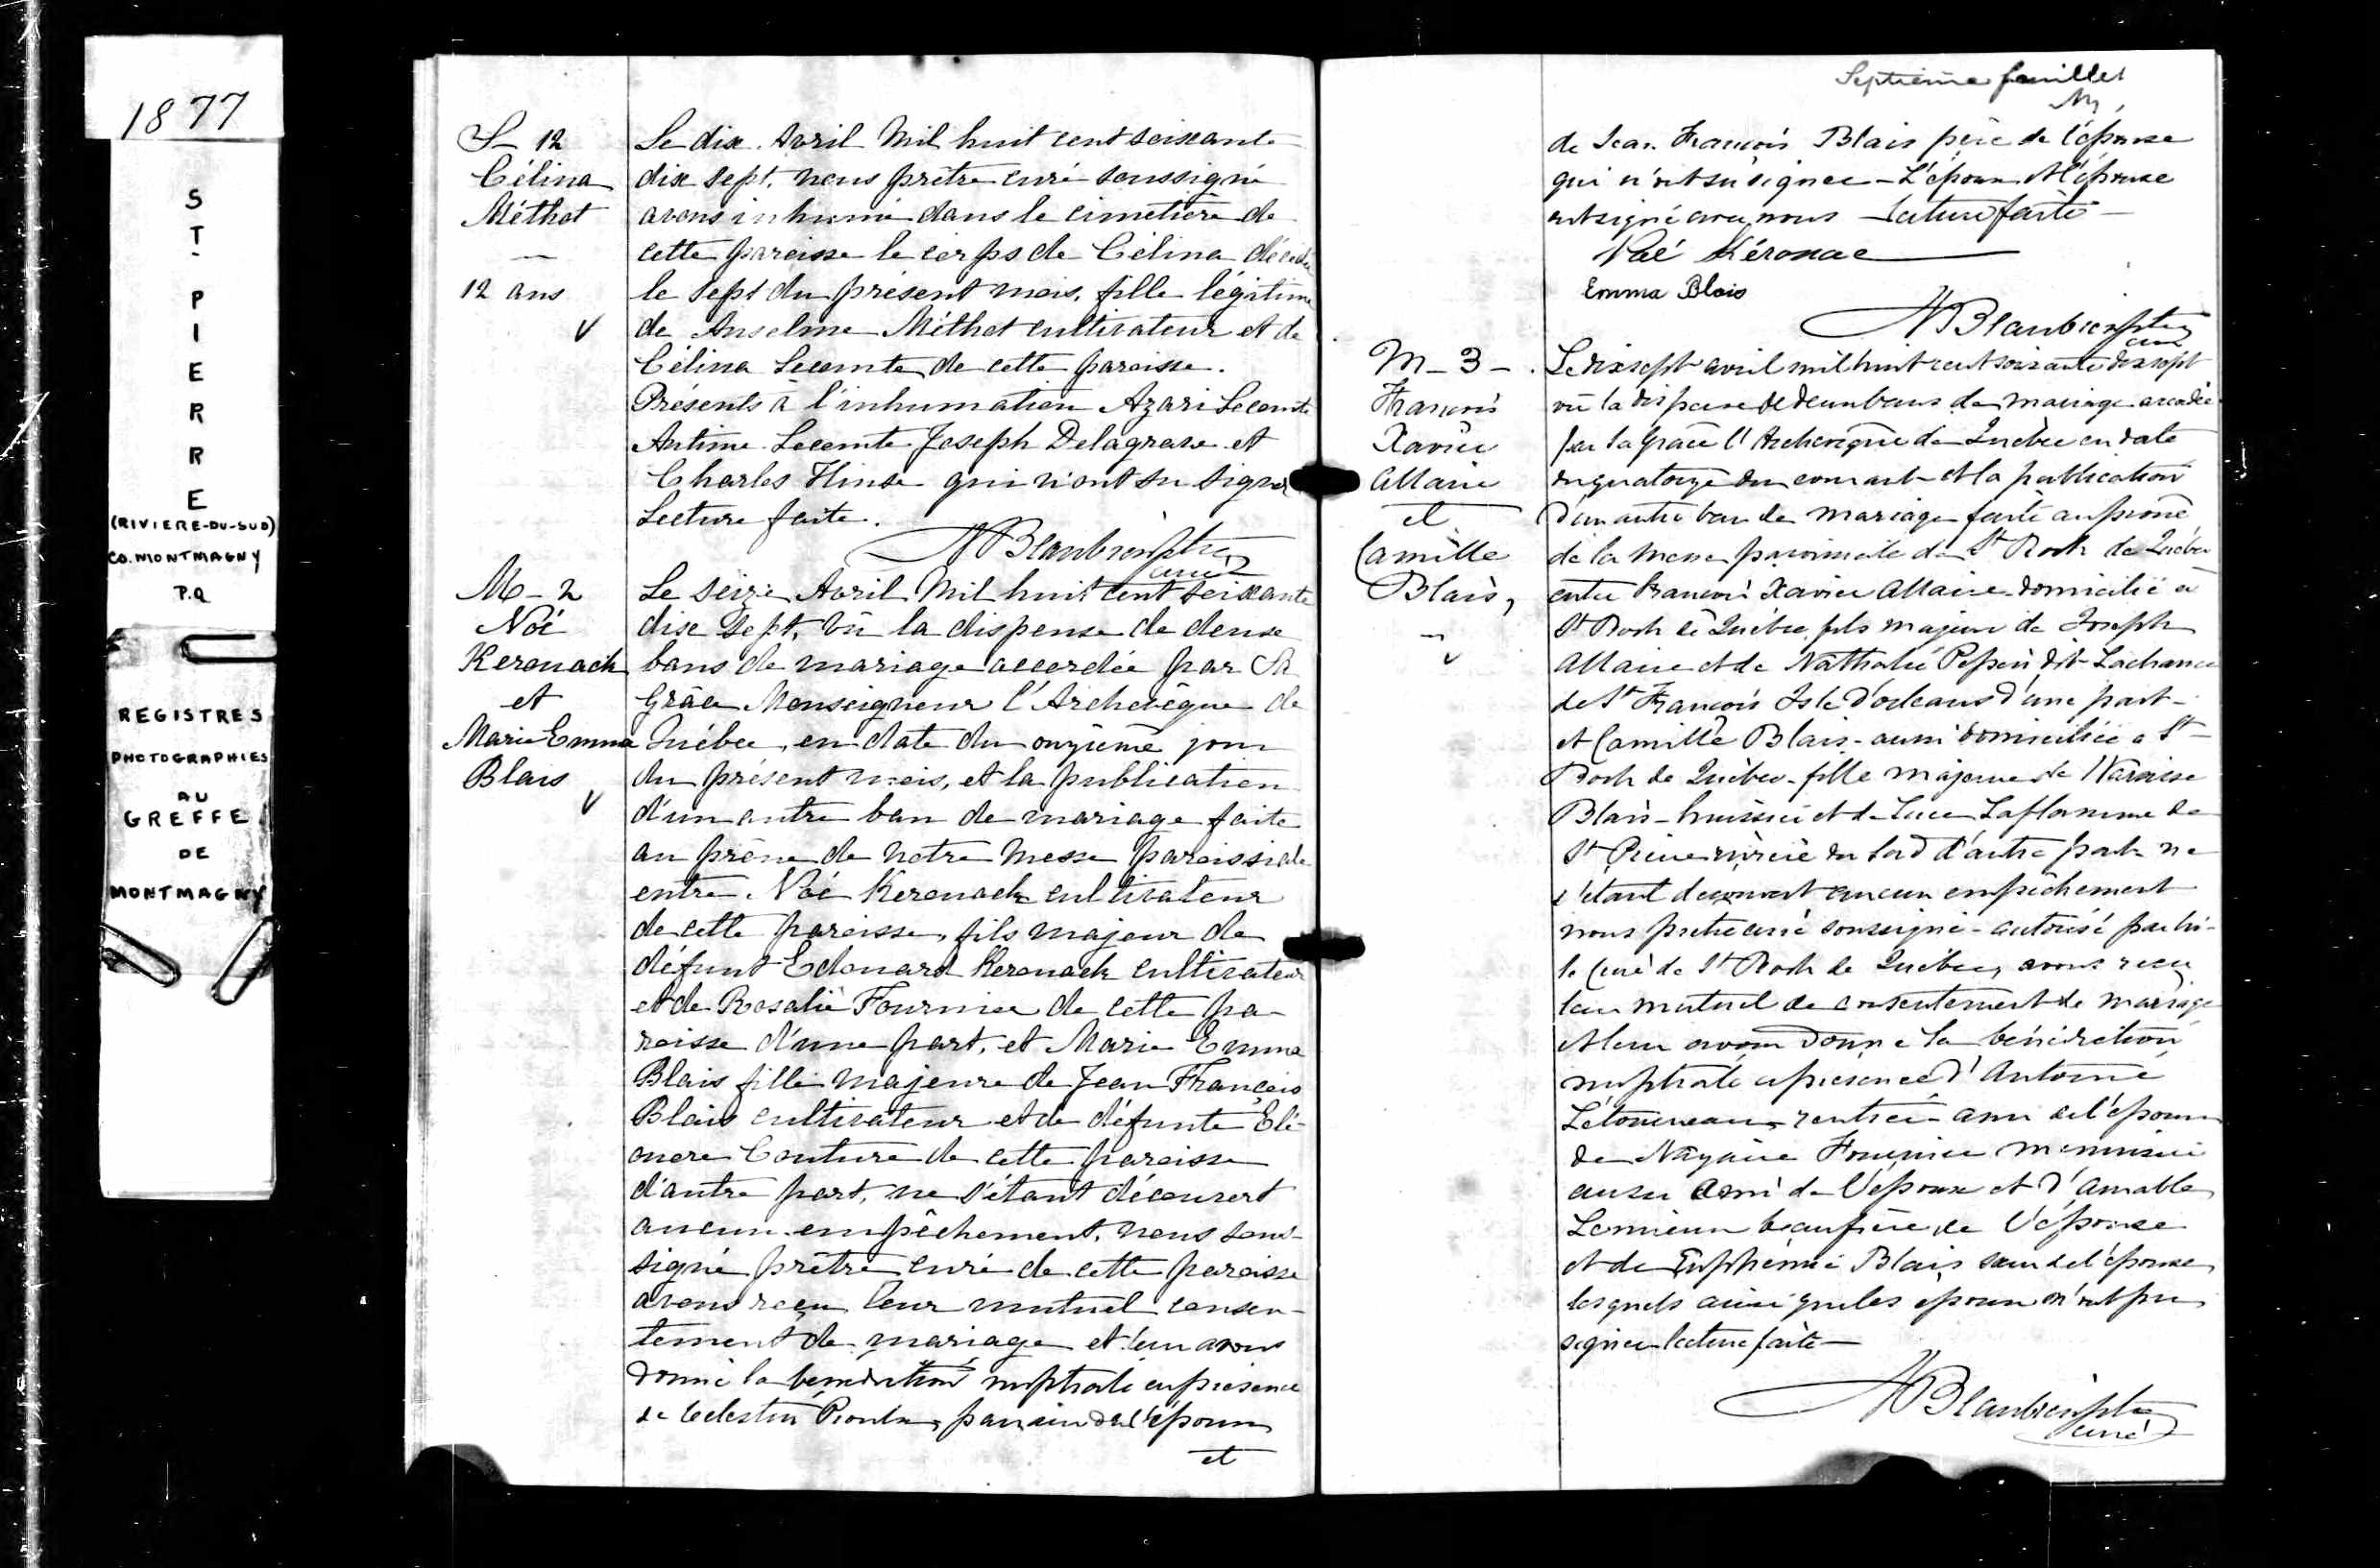 1877
ST. PIERRE
(RIVIERE-DU-SUD)
CO. MONTMAGNY
P.Q
REGISTRES
PHOTOGRAPHIES
AU
GREFFE
DE
MONTMAGNY
S-12
Célina
Méthot
12 ans
Le dix Avril Mil huit cent soixante
dix sept, nous prêtre curé soussigné
avons inhumé dans le cimetière de
cette paroisse le corps de Célina décédée
le sept du présent mois, fille légitime
de Anselme Méthot cultivateur et de
Célina Lecomte de cette paroisse.
Présents à l'inhumation Azari Lecomte
Antime Lecomte Joseph Delagrave et
Charles Hinse qui n'ont su signer
Lecture faite.
Curé
M-2
Noé
Keronack
et
Marie Emma
Blais
Le seize Avril Mil huit cent soixante
dix sept, vû la dispense de deux
bans de mariage accordée par Sa
Grâce Monseigneur l'Archevêque de
Québec, en date du onzième jour
du présent mois, et la publication
d'un autre ban de mariage faite
au prône de notre Messe paroissiale
entre Noé Keronack cultivateur
de cette paroisse, fils majeur de
défunt Edouard Keronack cultivateur
et de Rosalie Fournier de cette pa-
roisse d'une part, et Marie Emma
Blais fille majeure de Jean François
Blais cultivateur et de défunte Elé-
onore Couture de cette paroisse
d'autre part, ne s'étant découvert
aucun empêchement, nous sous-
signé prêtre curé de cette paroisse
avons reçu leur mutuel consen-
tement de mariage et leur avons
donné la bénédiction nuptiale en présence
de Celestin Proulx, parrain de l'époux
et
Septième feuillet
de Jean François Blais père de l'épouse
qui n'ont su signer - L'époux et l'épouse
ont signé avec nous - lecture faite -
Noé Kéronac
Emma Blais
curé
M-3-
François
Xavier
Allaire
et
Camille
Blais,
Le dix sept avril mil huit cent soixante dix sept
vû la dispense de deux bans de mariage accordée
par Sa Grace l'Archevêque de Québec en date
du quatorze du courant et la publication
d'un autre ban de mariage faite au prône
de la messe paroissiale de St Roch de Québec
entre François Xavier Allaire domicilié à
St Roch de Québec, fils majeur de Joseph
Allaire et de Nathalie Pepin dit Lachance
de St François Isle d'orleans d'une part -
et Camille Blais - aussi domiciliée a St
Roch de Québec - fille majeure de Narcisse
Blais - huissier et de Luce Laflamme de
St Pierre rivière du Sud d'autre part ne
s'étant découvert aucun empêchement
nous prêtre curé soussigné - autorisé par
le Curé de St Roch de Québec, avons reçu
leur mutuel de consentement de mariage
et leur avons donné la bénédiction
nuptiale en présence d'Antoine
Létourneau, rentier ami de l'époux
de Nazaire Fournier menuisier
aussi ami de l'époux et d'Amable
Lemieux beaufrère de l'épouse
et de Euphémie Blais soeur de l'épouse
lesquels ainsi que les époux n'ont pu
signer lecture faite -
curé